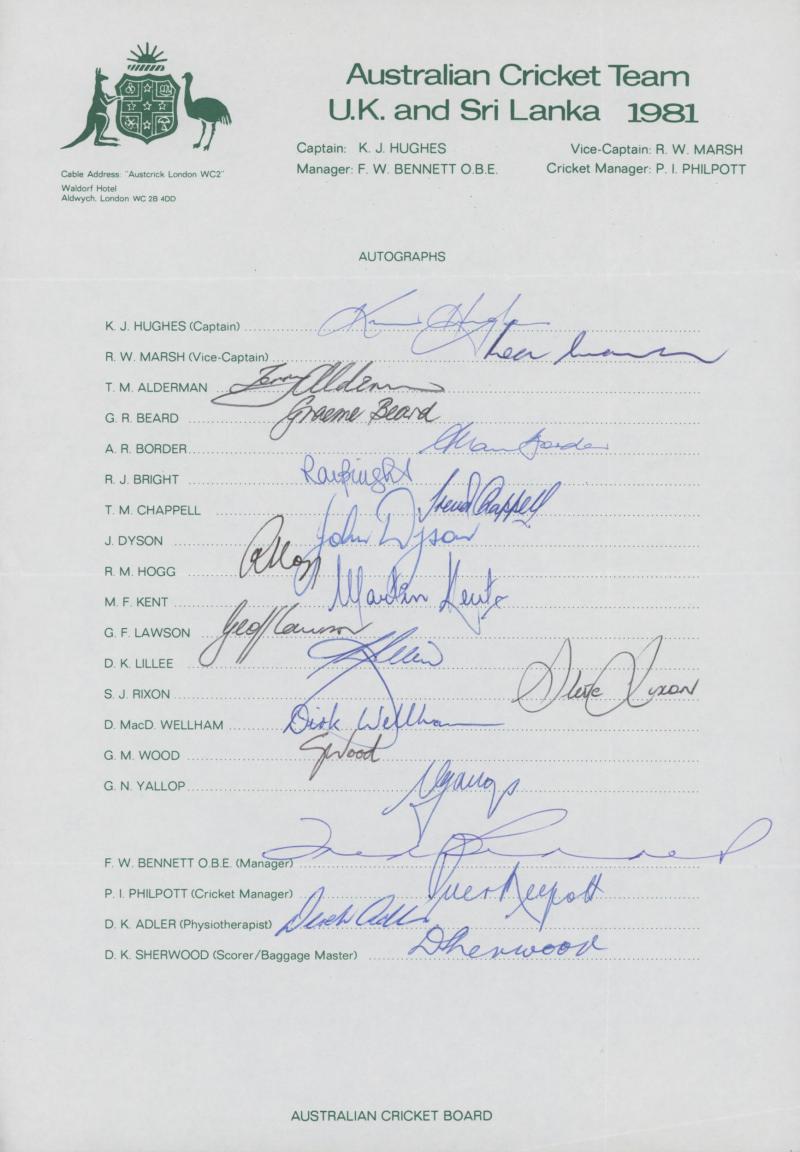 Australian Cricket Team
U.K. and Sri Lanka 1981
Captain: K. J. HUGHES Vice-Captain: R. W. MARSH
Manager: F. W. BENNETT O.B.E. Cricket Manager: P. I. PHILPOTT
Cable Address: "Austcrick London WC2"
Waldorf Hotel
Aldwych, London WC 2B 4DD
AUTOGRAPHS
K. J. HUGHES (Captain)
R. W. MARSH (Vice-Captain)
T. M. ALDERMAN Terry Alderman
G. R. BEARD Graeme Beard
A. R. BORDER Allan Border
R. J. BRIGHT Ray Bright
T. M. CHAPPELL Trevor Chappell
J. DYSON John Dyson
R. M. HOGG R Hogg
M. F. KENT Martin Kent
G. F. LAWSON Geoff Lawson
D. K. LILLEE
S. J. RIXON Steve Rixon
D. MacD. WELLHAM Dirk Wellham
G. M. WOOD G Wood
G. N. YALLOP
F. W. BENNETT O.B.E. (Manager)
P. I. PHILPOTT (Cricket Manager)
D. K. ADLER (Physiotherapist) Derek Adler
D. K. SHERWOOD (Scorer/Baggage Master) D Sherwood
AUSTRALIAN CRICKET BOARD